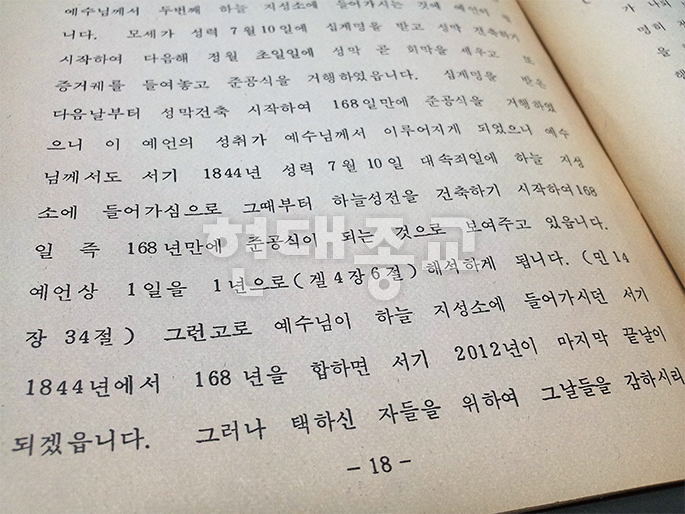 예수님께서 두번째 하늘 지성소에 들어가시는 것에 예언이
니다. 모세가 성력 7월 10일에 십계명을 받고 성막 건축하기
시작하여 다음해 정월 초일일에 성막 곧 회막을 세우고 또
증거궤를 들여놓고 준공식을 거행하였읍니다. 십계명을 받은
다음날부터 성막건축 시작하여 168일만에 준공식을 거행하였
으니 이 예언의 성취가 예수님께서 이루어지게 되었으니 예수
님께서도 서기 1844년 성력 7월 10일 대속죄일에 하늘 지성
소에 들어가심으로 그때부터 하늘성전을 건축하기 시작하여 168
일 즉 168년만에 준공식이 되는 것으로 보여주고 있읍니다.
예언상 1일을 1년으로(겔 4장 6절) 해석하게 됩니다. (민 14
장 34절) 그런고로 예수님이 하늘 지성소에 들어가시던 서기
1844년에서 168년을 합하면 서기 2012년이 마지막 끝날이
되겠읍니다. 그러나 택하신 자들을 위하여 그날들을 감하시리
-18-
현대종교